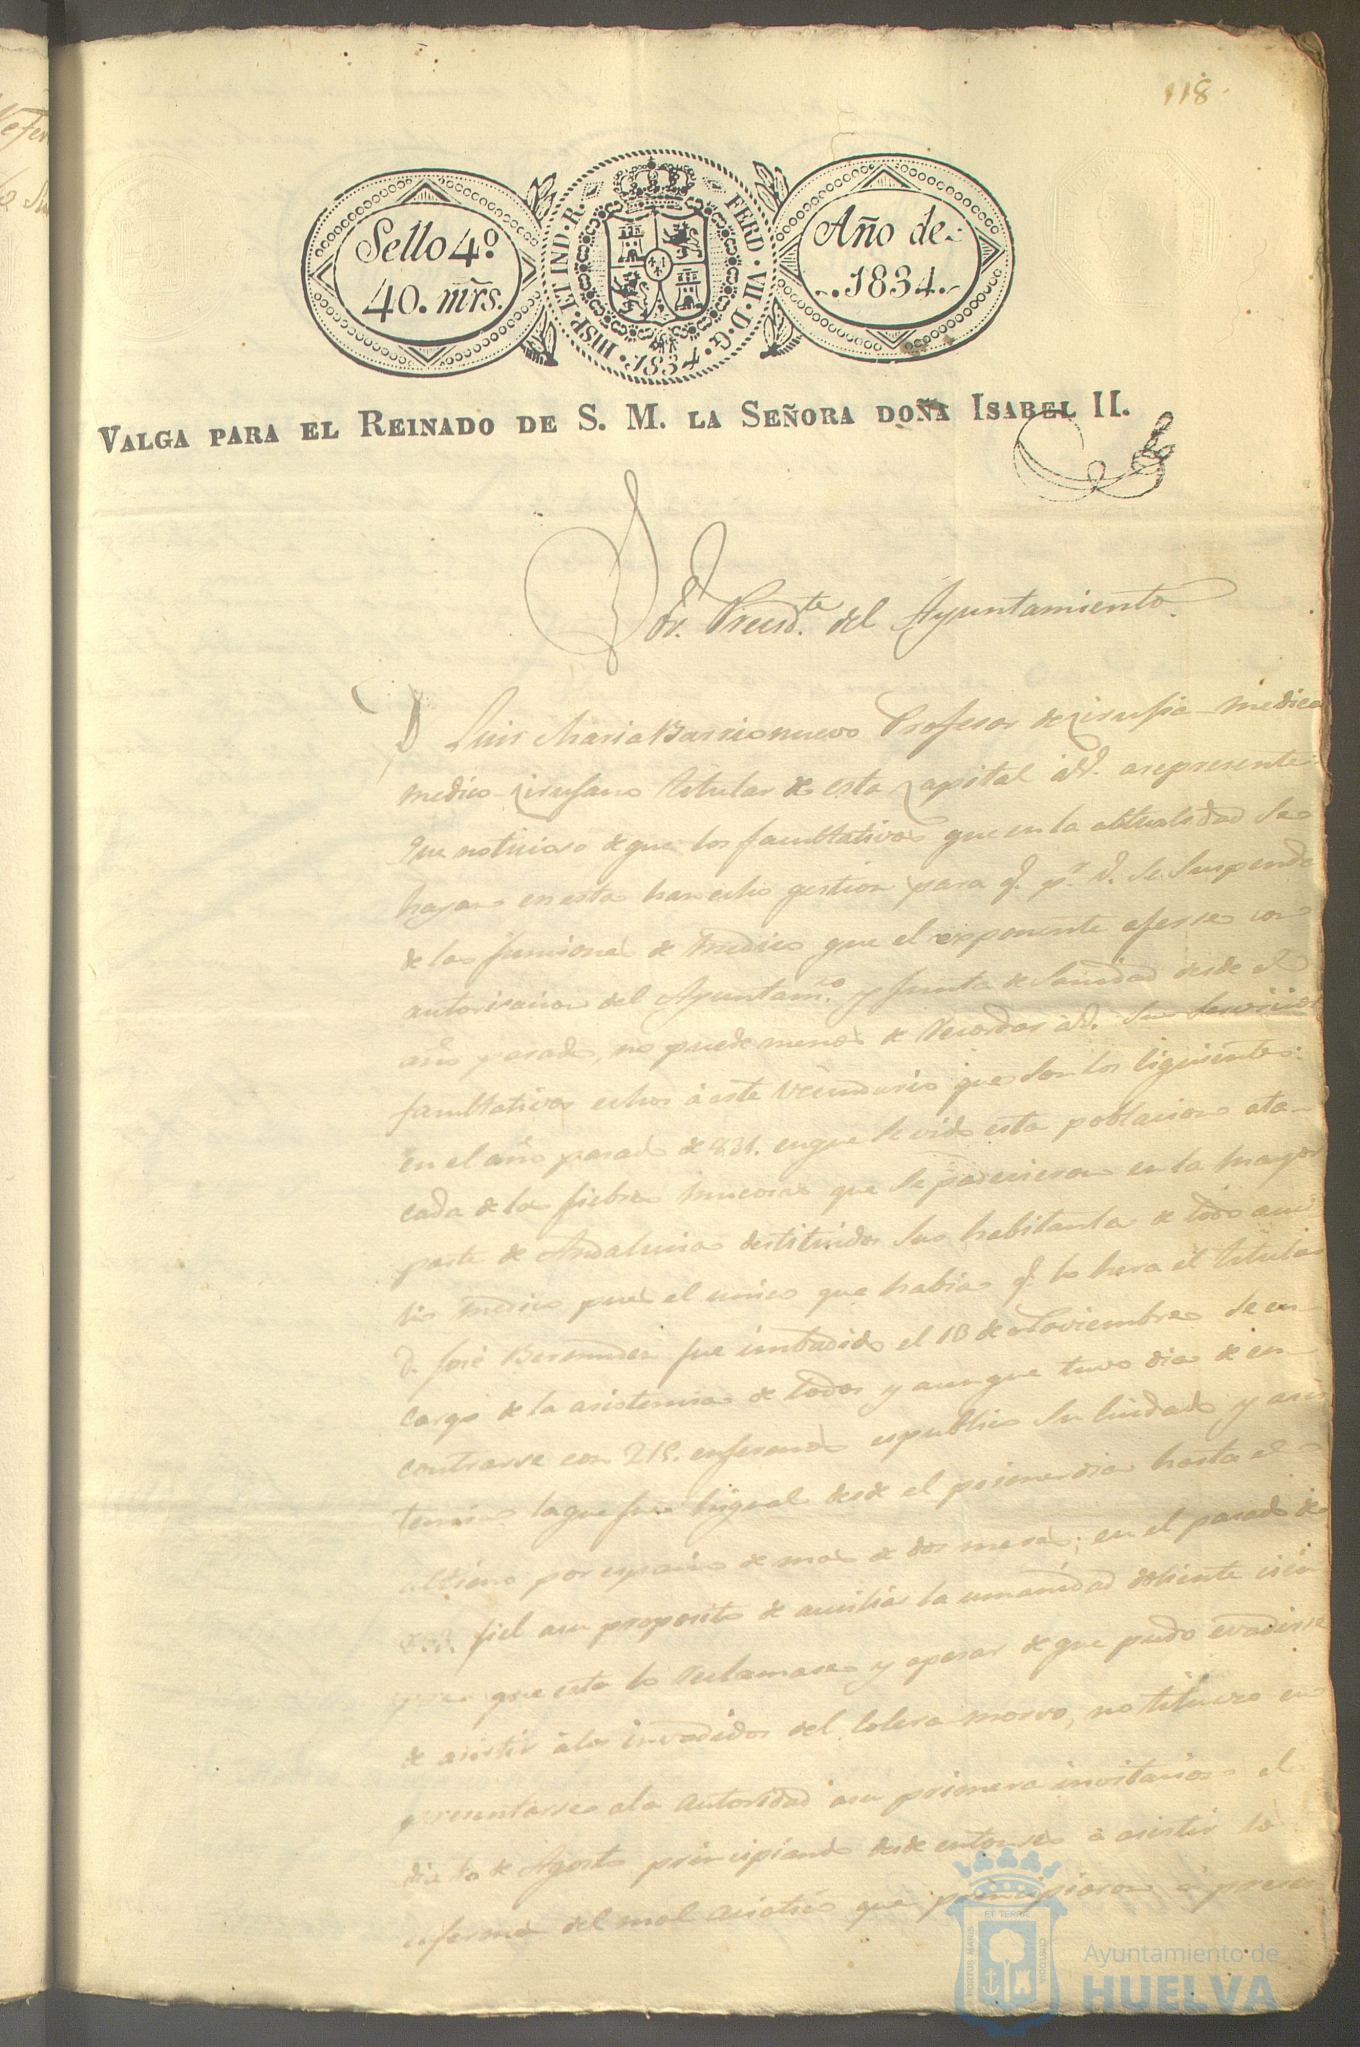 118.
Sello 4º
40. mrs.
HISP. ET IND. R.
FERD. VII. D. G.
1834.
Año de
1834.
VALGA PARA EL REINADO DE S. M. LA SEÑORA DOÑA ISABEL II.
Sr. Presidte. del Ayuntamiento.
D Luis Maria Barrionuevo Profesor de Cirusia medica
medico Cirusano titular de esta Capital á V. aepresente:
Que noticioso de que los facultativos que en la abtualidad se
hayan en esta han echo gestion para q. pr. V. se suspenda
de las funciones de medico que el exponente eferse con
autorisacion del Ayuntamto. y Junta de Sanidad desde el
año pasado, no puede menos de recordar á V. sus servicios
facultativos echos á este vecindario que son los siguientes:
en el año pasado de 831. en que se vido esta poblacion ata-
cada de las fiebres mucosas que se padecieron en la mayor
parte de Andalucia destituidos sus habitantes de todo aucí
lio medico pues el unico que habia q. lo hera el titular
D. José Bermudez fue imbadido el 18 de Noviembre se en-
cargó de la asistencia de todos y aunque tuvo dia de en-
contrarse con 215. enfermos es publico su cuidado y asis
tencia la que fue higual desde el primer dia hasta el
ultimo por espacio de mas de dos meses; en el pasado de
833. fiel a su proposito de auciliar la umanidad doliente siem
pre que esta lo reclamase y apesar de que pudo evadirse
de asistir á los invadidos del colera morvo, no titubeo en
presentarse ala autoridad a su primera invitacion el
dia de Agosto principiando desde entonses á asistir los
enfermos del mal asiatico que principiaron á presen
ET TERRAE
PORTUS MARIS
CUSTODIA
Ayuntamiento de
HUELVA